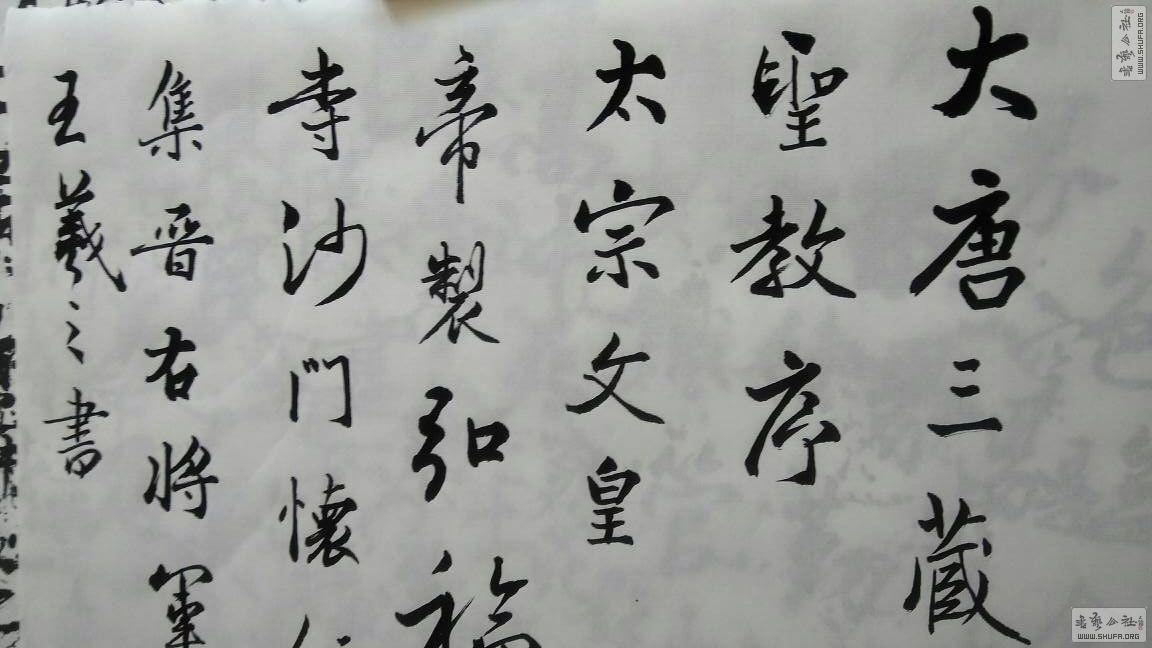 大唐三藏
聖教序
太宗文皇
帝製弘福
寺沙門懷
集晉右將軍
王羲之書
WWW.SHUFA.ORG
WWW.SHUFA.ORG